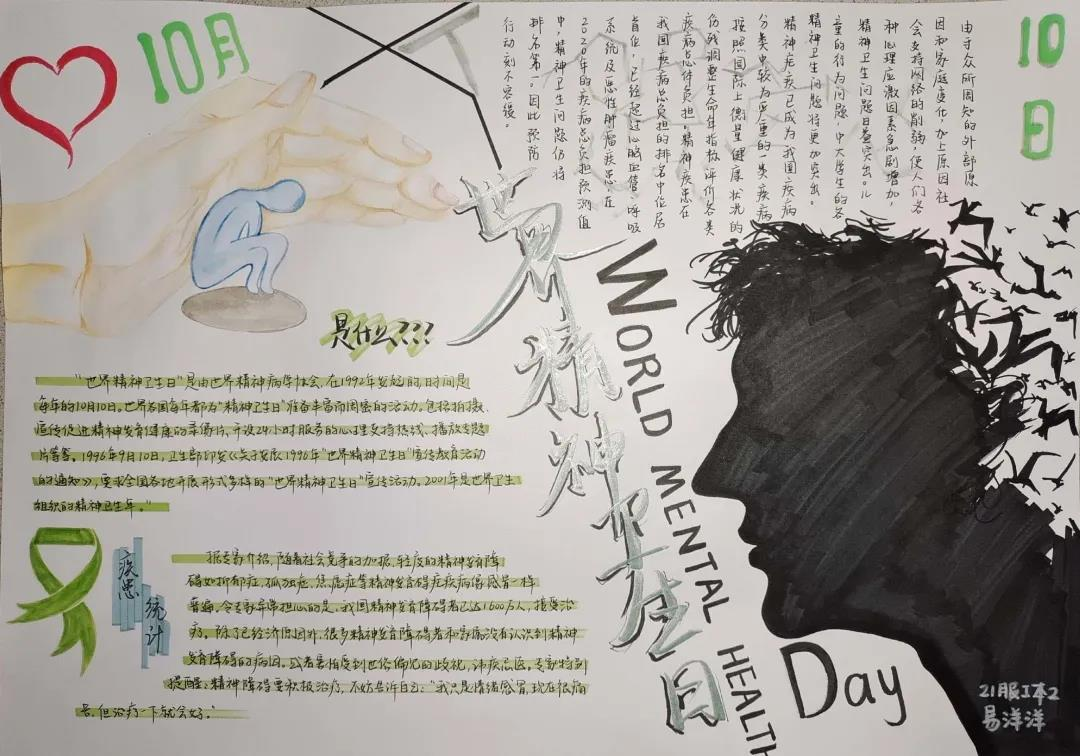 10月
10日
由于众所周知的外部原
因和家庭变化,加上原因社
会支持网络的削弱,使人们各
种心理应激因素急剧增加,
精神卫生问题日益突出。儿
童的行为问题,中大学生的各
精神卫生问题将更加突出。
精神疾疾已成为我国疾病
分类中较为严重的一类疾病
按照国际上衡量健康状况的
伤残调整生命年指标评价各类
疾病总体负担,精神疾患在
我国疾病总负担的排名中位居
首位,已经超过心脑血管、呼吸
系统及恶性肿瘤疾患,在
2020年的疾病总负担预测值
中,精神卫生问题仍将
排名第一。因此预防
行动刻不容缓。
世界精神卫生日
WORLD MENTAL HEALTH
Day
是什么???
"世界精神卫生日"是由世界精神病学协会,在1992年发起的,时间是
每年的10月10日。世界各国每年都为"精神卫生日"准备丰富而周密的活动。包括拍摄、
宣传促进精神发育健康的录像片、开设24小时服务的心理支持热线、播放专题
片等等。1996年9月10日,卫生部印发《关于发展1996年"世界精神卫生日"宣传教育活动
的通知》,要求全国各地开展形式多样的"世界精神卫生日"宣传活动。2001年是世界卫生
组织的精神卫生年。"
疾患
统计
据专家介绍,随着社会竞争的加据,轻度的精神发育障
碍如抑郁症,孤独症,焦虑症等精神发育碍疾病像感冒一样
普遍。令专家非常担心的是,我国精神发育障碍者已达1600万人,接受治
疗。除了已经济原因外,很多精神发育障碍者和家属没有认识到精神
发育障碍的病因。或者害怕受到世俗偏见的歧视,讳疾忌医。专家特别
提醒:精神障碍要积极治疗,不妨告诉自己:"我只是情绪感冒,现在很痛
苦,但治疗一下就会好。"
21服工本2
易洋洋